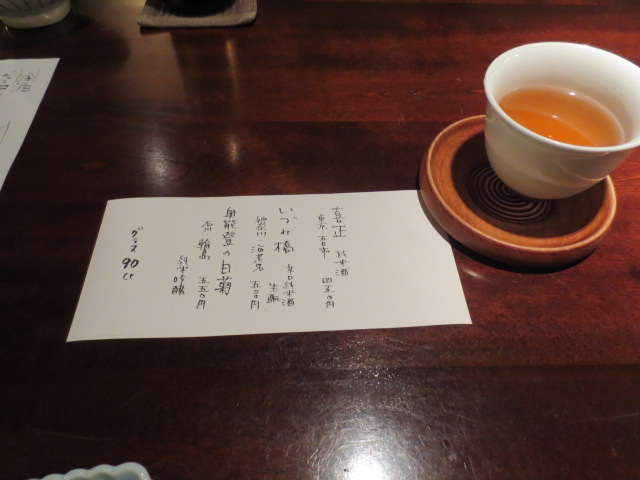 喜正 純米酒
東京・五日市 四五〇円
いづみ橋 辛口純米酒
生酛
神奈川・海老名 五〇〇円
奥能登の白菊
純米吟醸
石川 輪島 五五〇円
グラス 90cc